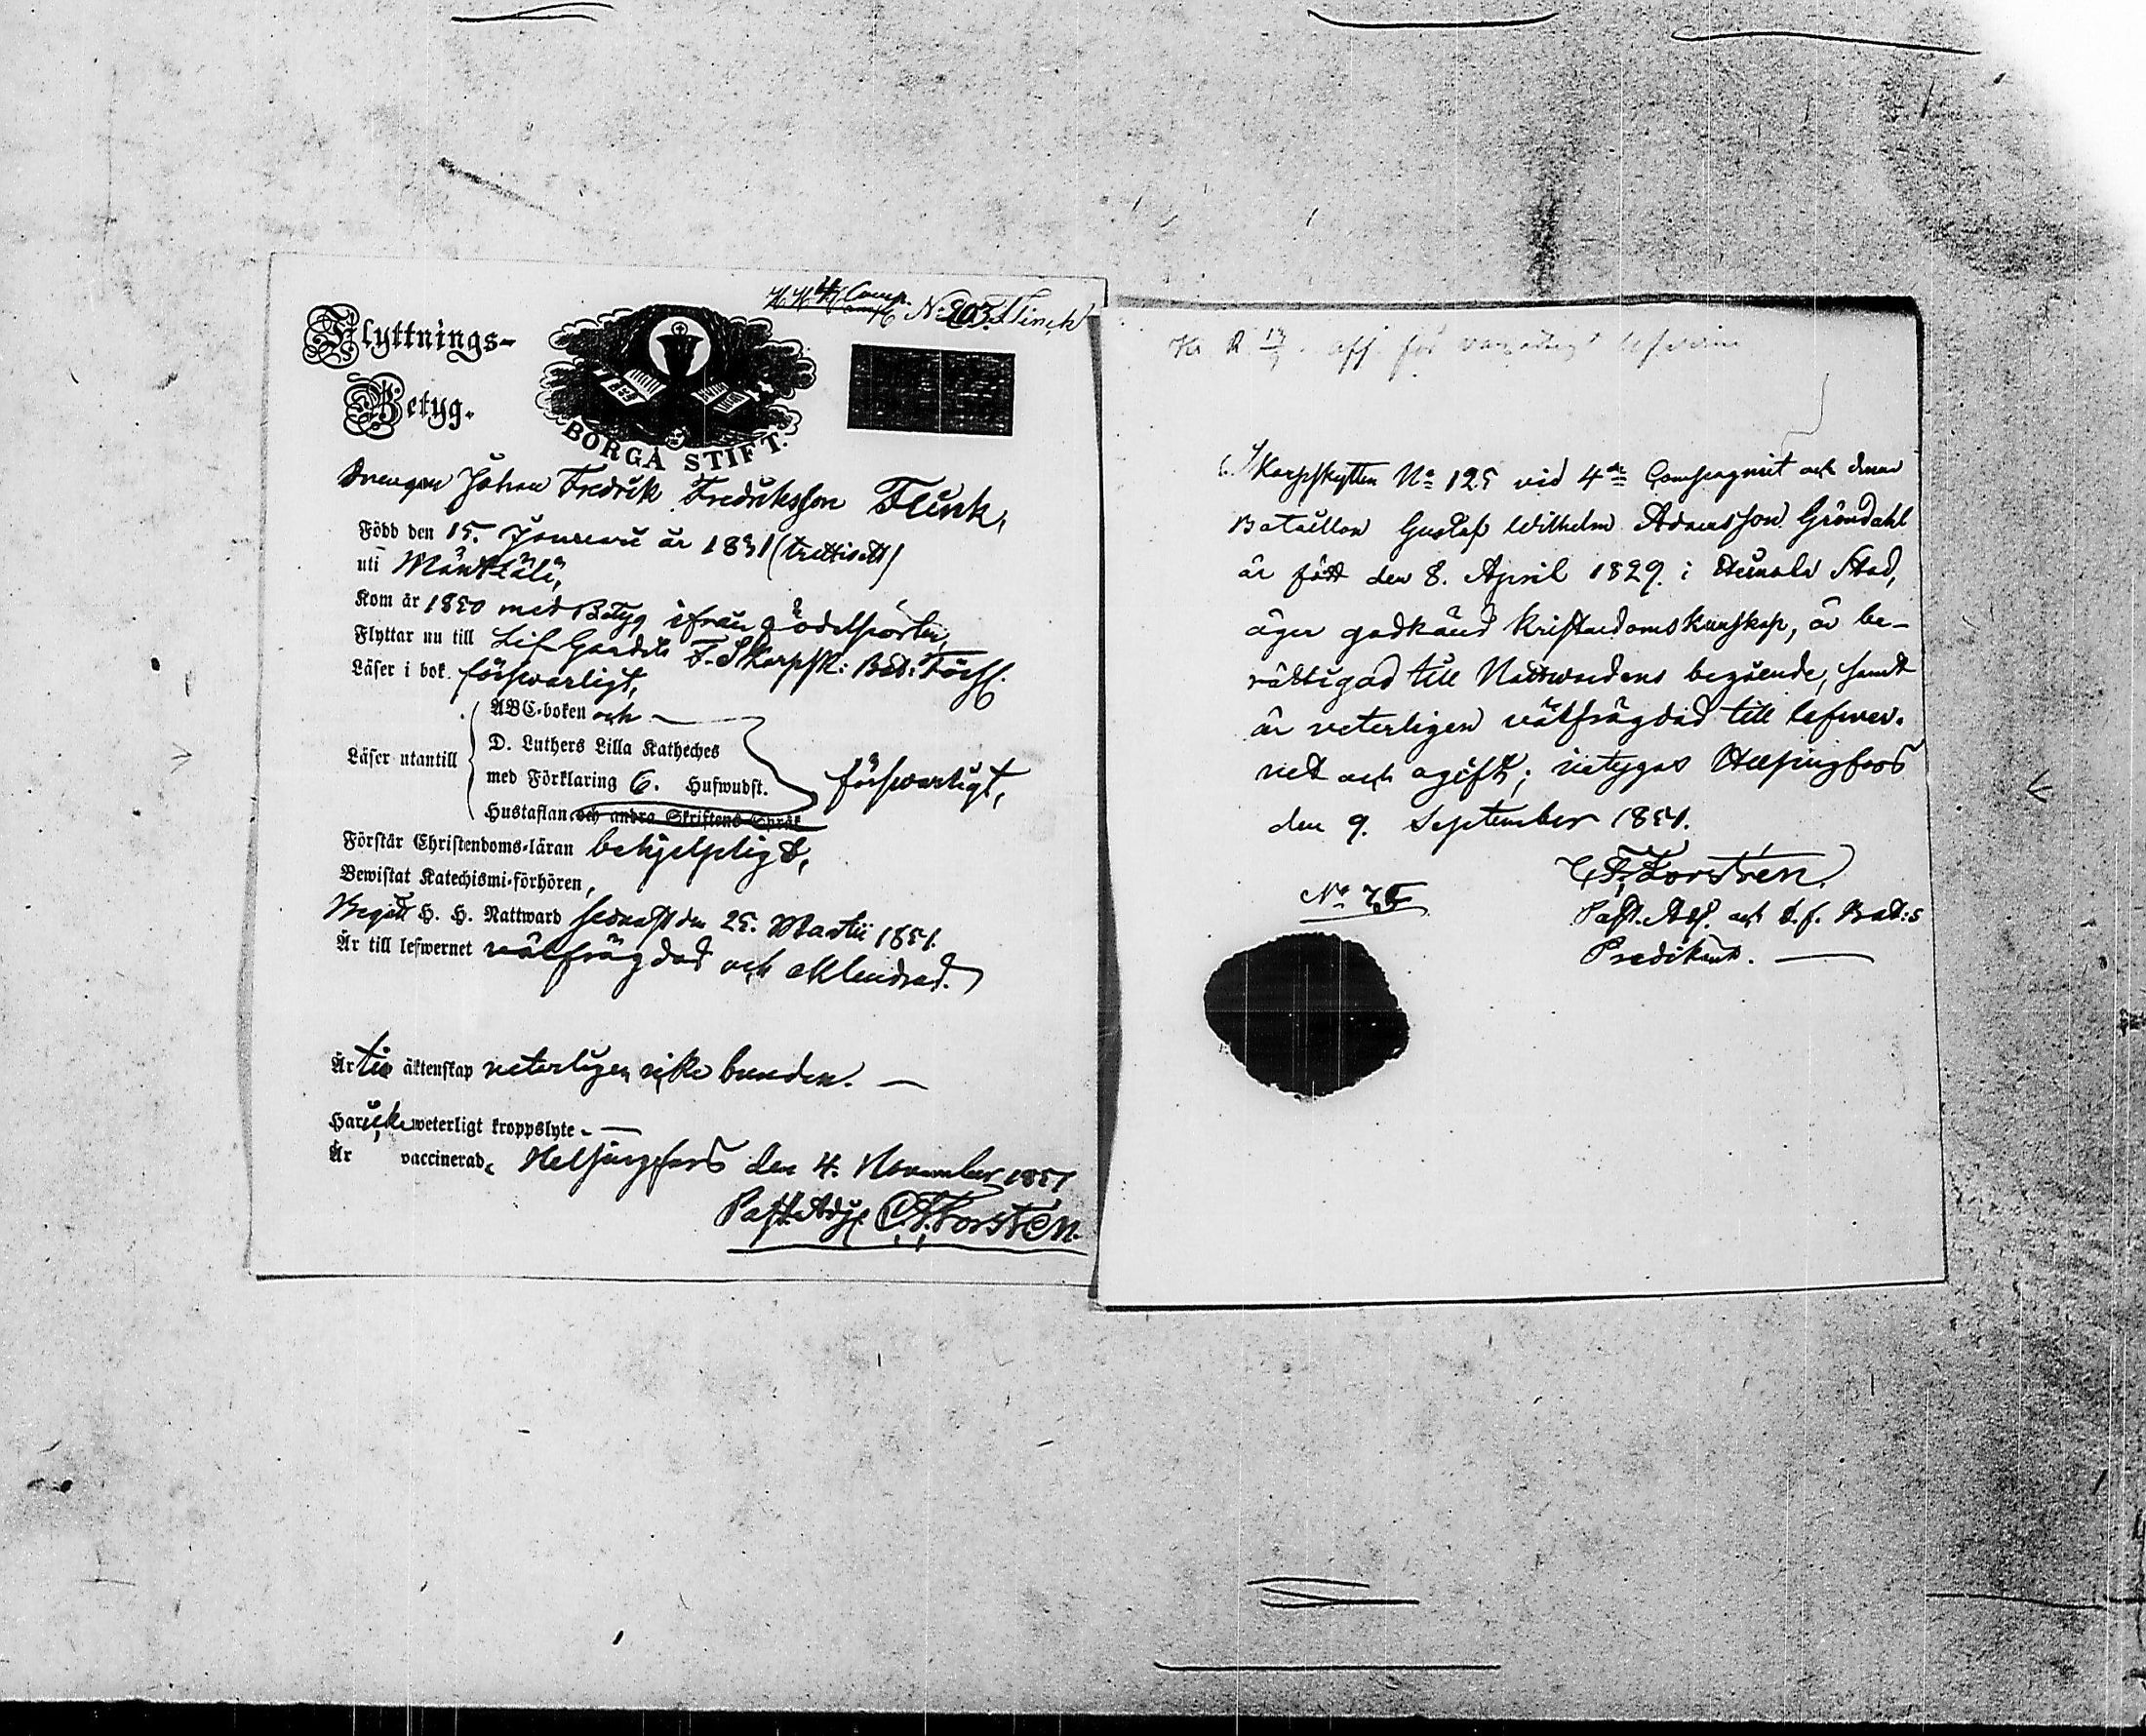 4 Comp. No 203. Flinck
Flyttnings-
Betyg.
BORGÅ STIFT.
Drengen Johan Fredrik Fredriksson Flink,
Född den 15. Januari år 1831 (trettiett)
uti Mäntsälä,
Kom år 1850 med Betyg ifrån
Flyttar nu till Lif Gardets F. Skarpsk: Bat: Förs:
Läser i bok. försvarligt,
ABC-boken och
Läser utantill
D. Luthers Lilla Katheches
med Förklaring 6. Hufwudst. försvarligt,
Hustaflan och andra Skriftens Språk
Förstår Christendoms-läran behjelpligt,
Bewistat Katechismi-förhören,
Begått H. H. Nattward sednast den 25. Martii 1851.
Är till lefwernet välfrägdad och oklandrad.
Är till äktenskap veterligen icke bunden. —
Har icke weterligt kroppslyte. —
Är vaccinerad, Helsingfors den 4. November 1851
Past. Adj. C. F. Forstén.
för lefverne
Skarpskytten No 125 vid 4de Compagniet och denna
Bataillon Gustaf Wilhelm Adamsson Gröndahl
är född den 8. April 1829. i Stad,
äger godkänd kristendomskunskap, är be-
rättigad till Nattvardens begående, samt
är veterligen välfrägdad till lefver-
net och ogift; intygas Helsingfors
den 9. September 1854.
C. F. Forstén.
No 75
Past. Adj. och t.f. Bat:s
Predikant. —